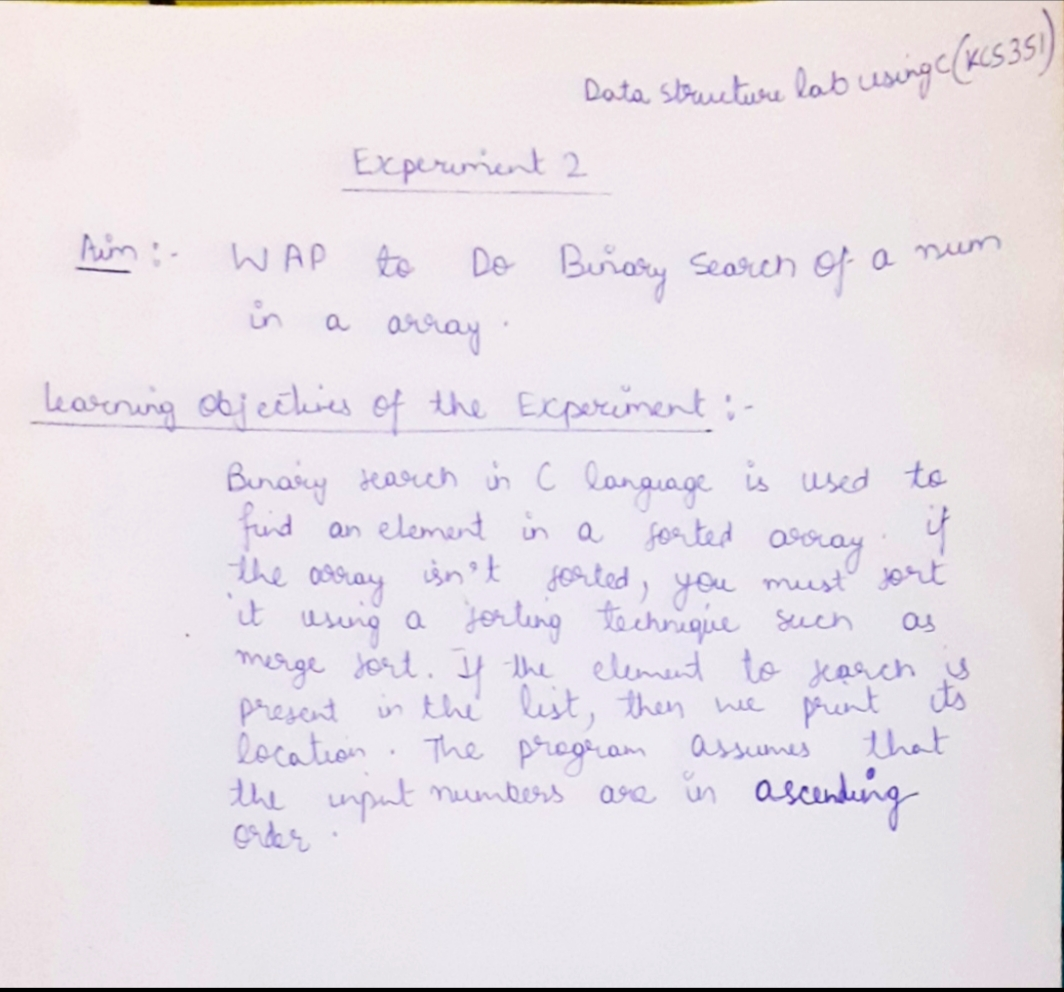 Data structure lab using C (KCS351)
Experiment 2
Aim :- WAP to Do Binary Search of a num
in a array.
Learning Objectives of the Experiment :-
Binary search in C language is used to
find an element in a sorted array. if
the array isn't sorted, you must sort
it using a sorting technique such as
merge sort. If the element to search is
present in the list, then we print its
location. The program assumes that
the input numbers are in ascending
order.